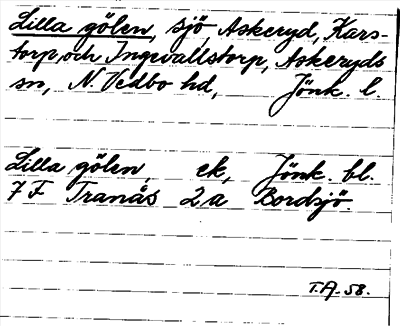 Lilla gölen, sjö Askeryd, Kars-
torp, och Ingevallstorp, Askeryds
sn, N. Vedbo hd, Jönk. l.
Lilla gölen, ek, Jönk. bl.
7 F Tranås 2a Bordsjö.
T.A. 58.